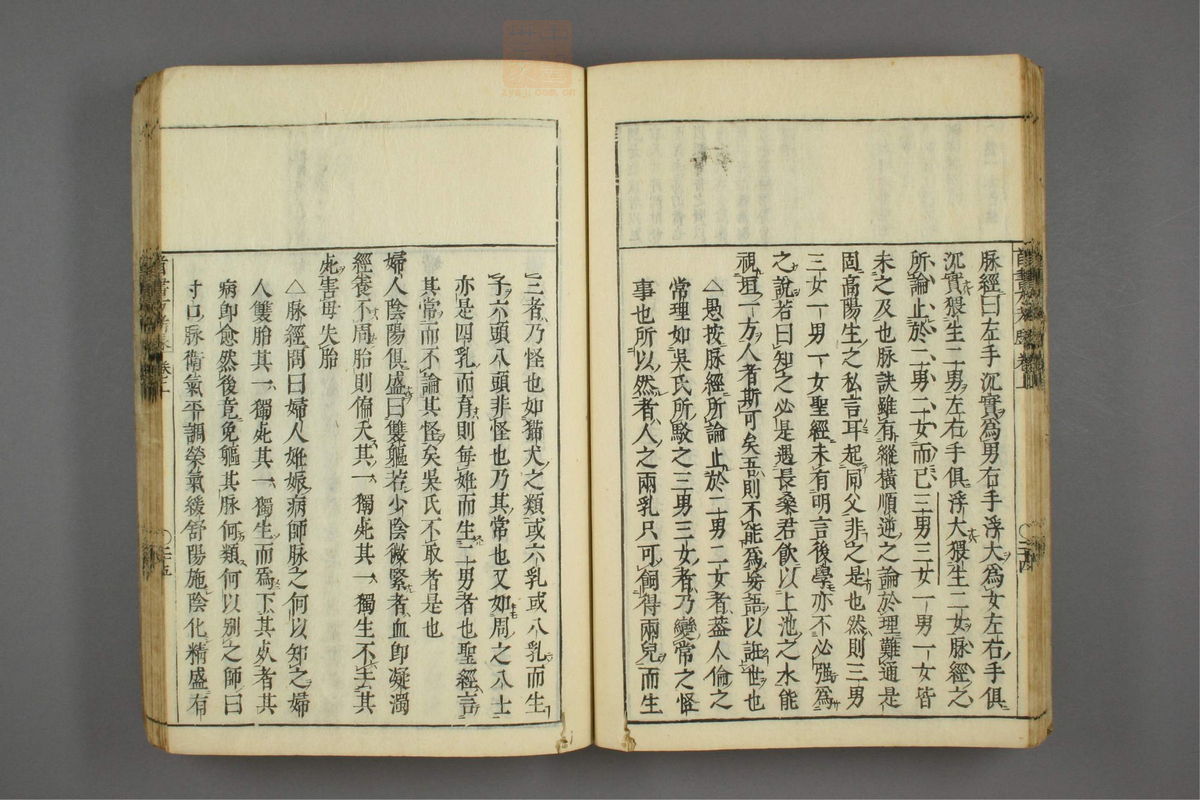 脉經曰左手沉實爲男右手浮大爲女左右手俱
沉實猥生二男左右手俱浮大猥生二女脉經之
所論止於二男二女而已三男三女一男一女皆
未之及也脉訣雖有縱横順逆之論於理難通是
固高陽生之私言耳起同父非之是也然則三男
三女一男一女聖經未有明言後學亦不必强爲
之說若曰知之必是遇長桑君飲以上池之水能
視垣一方人者斯可矣吾則不能爲妄語以誑世也
△愚按脉經所論止於二男二女者葢人倫之
常理如吳氏所駁之三男三女者乃變常之怪
事也所以然者人之兩乳只可飼得兩兒而生
三者乃怪也如猫犬之類或六乳或八乳而生
子六頭八頭非怪也乃其常也又如周之八士
亦是四乳而育則每姙而生二男者也聖經言
其常而不論其怪矣吳氏不取者是也
婦人陰陽俱盛曰雙軀若少陰微緊者血即凝濁
經養不周胎則偏夭其一獨死其一獨生不去其
死害母失胎
△脉經問曰婦人姙娠病師脉之何以知之婦
人雙胎其一獨死其一獨生而爲下其死者其
病即愈然後竟免軀其脉何類何以别之師曰
寸口脉衛氣平調榮氣緩舒陽施陰化精盛有